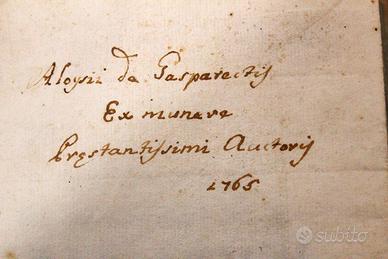 Aloysii de Gasparectis
Ex munere
Pręstantissimi Auctoris
1765
subito